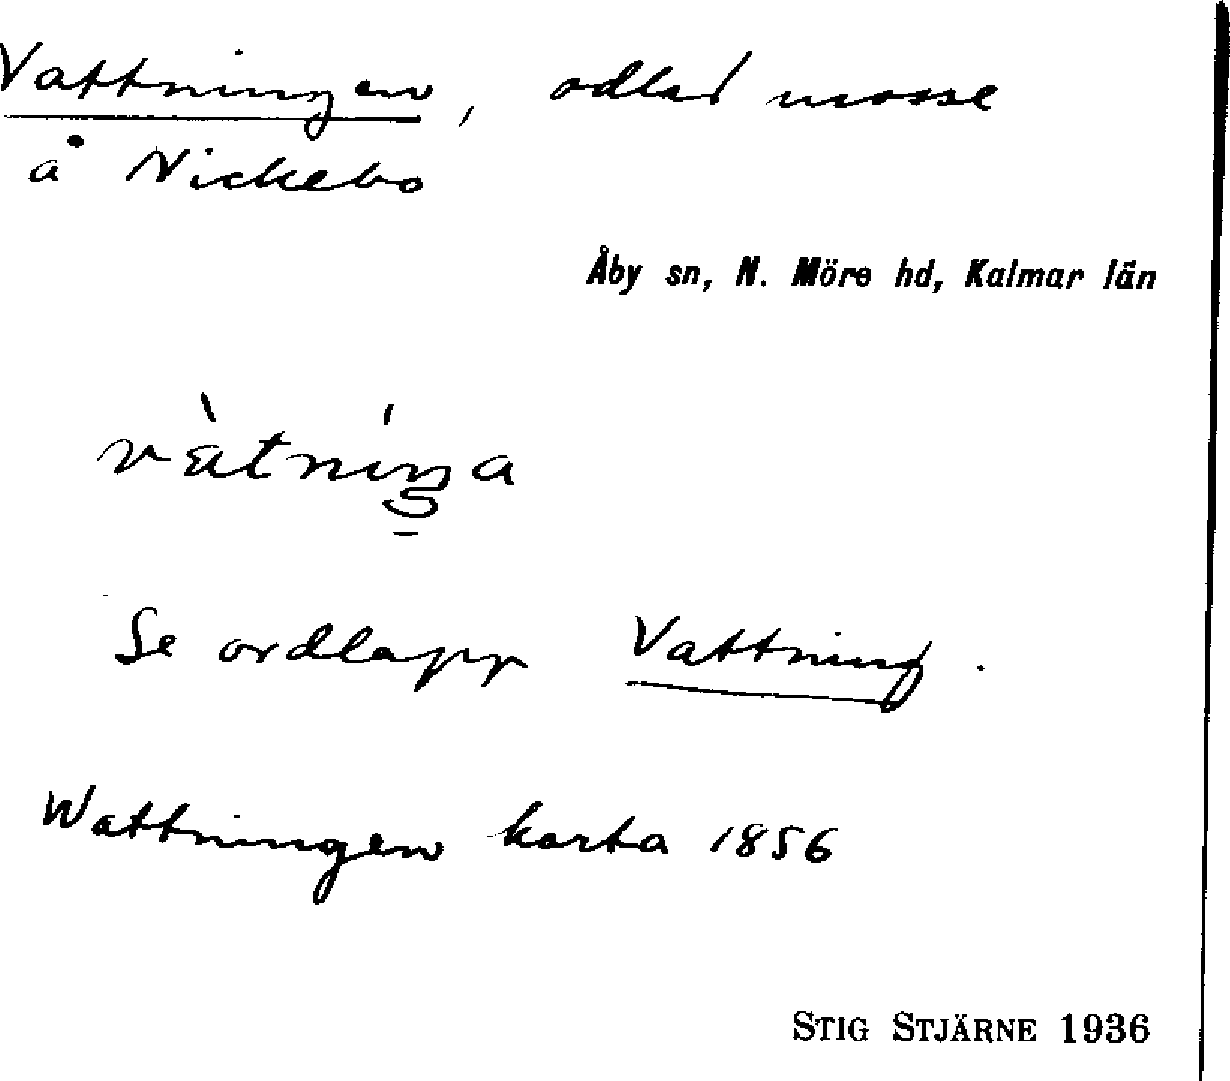 Vattningen, odlad mosse
å Nickebo
Åby sn, N. Möre hd, Kalmar län
Se ordlapp Vattning.
Wattningen karta 1856
STIG STJÄRNE 1936